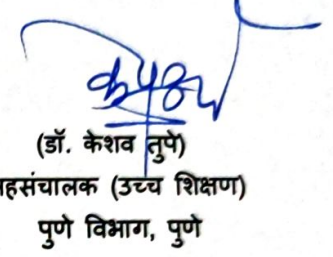 (डॉ. केशव तुपे)
हसंचालक (उच्च शिक्षण)
पुणे विभाग, पुणे